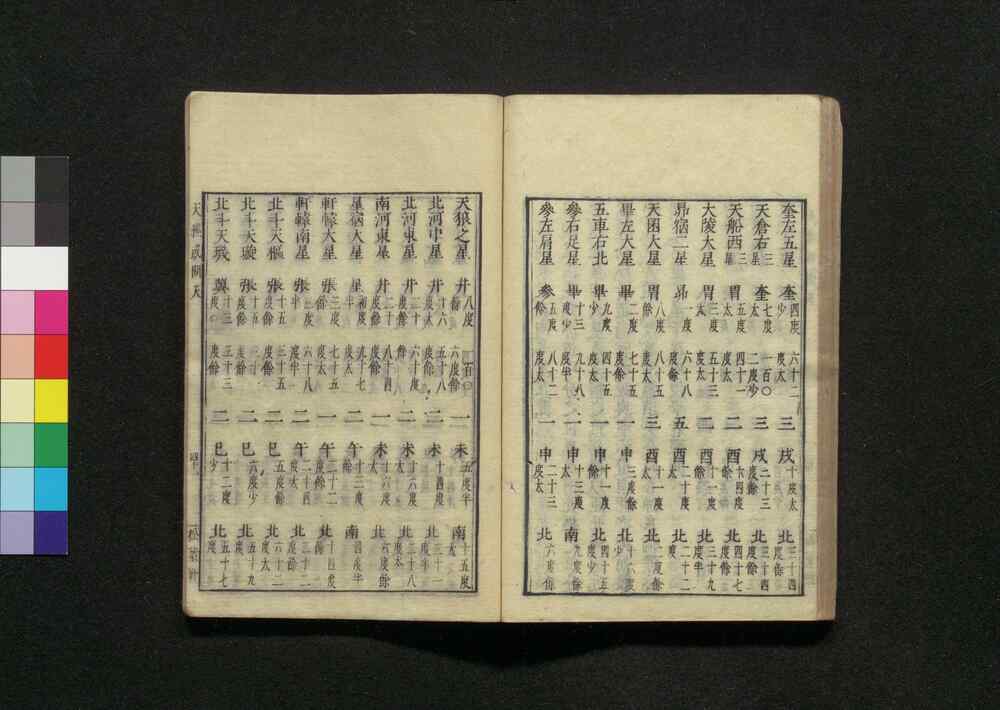 奎左五星 奎 四度少 六十二度太 三 戌 十度太 北 三十四度餘
天倉右三星 奎 七度太 一百〇二度少 三 戌 二十三度餘 北
天船西三星 胃 五度太 四十一度太 二 酉 十四度餘 北 四十七度餘
大陵大星 胃 三度太 五十三度太 二 酉 十一度餘 北 三十九度半
昴宿二星 昴 一度 六十八度餘 五 酉 二十度太 北 二十二度
天囷大星 胃 八度餘 八十五度太 三 酉 十一度太 北 二度餘
畢左大星 畢 二度餘 七十五度餘 一 申 三度餘 北 度少
五車右北 畢 九度少 四十五度太 一 申 十一度餘 北 四十五度少
參右足星 畢 十三度少 九十八度半 一 申 十三度太 南 九度餘
參左肩星 參 五度餘 八十二度太 一 申 二十三度太 北 六度餘
天狼之星 井 八度餘 一百〇六度餘 一 未 五度半 南 十五度太
北河中星 井 十六度太 五十八度餘 二 未 十四度 北 度半
北河東星 井 二十度餘 六十度餘 二 未 十六度太 北 二十八度太
南河東星 井 二十度餘 八十四度餘 一 未 十六度太 北 六度餘
星宿大星 星 初度太 九十七度太 二 午 十三度餘 南 四度半
軒轅大星 張 三度餘 七十五度太 一 午 二十二度餘 北 十四度
軒轅南星 張 度半 六十八度半 二 午 二十四度太 北
北斗天樞 張 十五度餘 三十五度餘 二 巳 五度餘 北 度太
北斗天璇 張 十五度餘 度餘 二 巳 六度少 北 五十九度
北斗天璣 翼 十三度 三十三度餘 二 巳 十二度少 北 五十七度